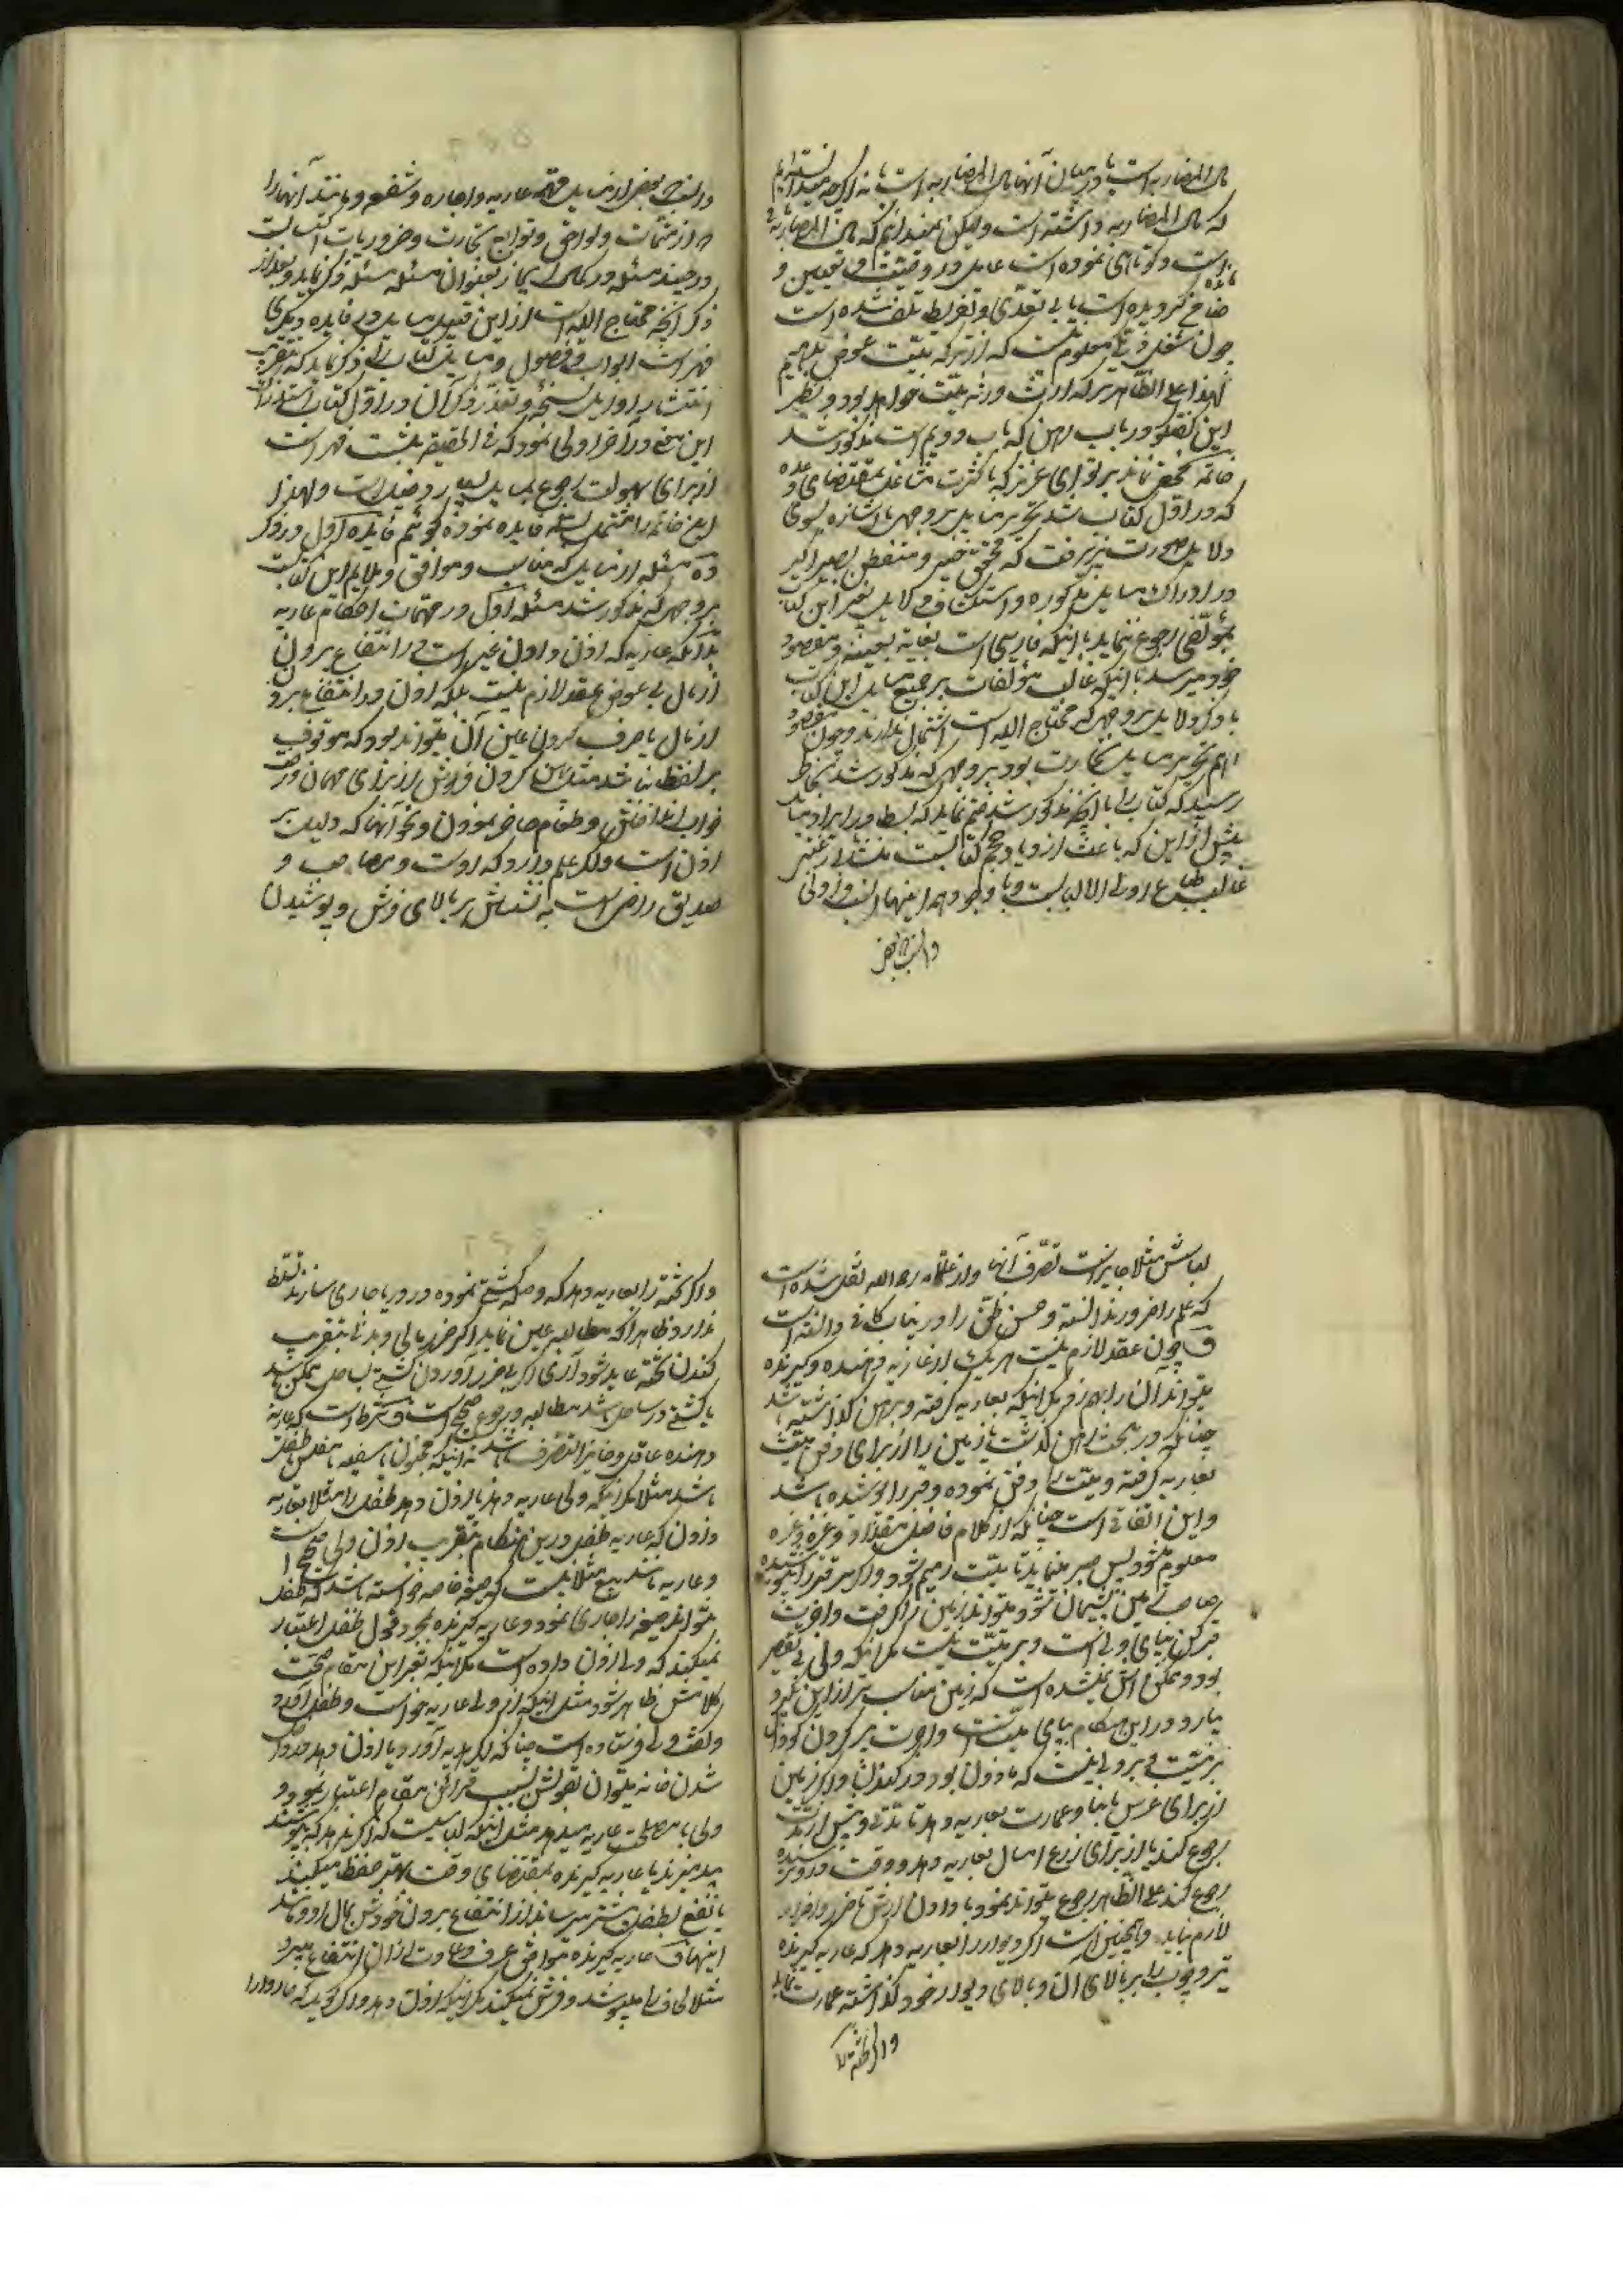 مال المضاربه است یا در میان آنها مال المضاربه است یا نه اگر چه میدانیم
که مال المضاربه داشته است ولیکن نمیدانیم که مال المضاربه
است و کوتاهی نموده است عامل در وصیت و تعیین و
ضایع گردیده است یا بی تعدی و تفریط تلف شده است
چون شغل ذمه معلوم نیست که از ترکه میت عوض بدهیم
لهذا علی الظاهر ترکه ارث ورثه میت خواهد بود و نظیر
این گفتگو در باب رهن که باب دویم است مذکور شد
خاتمه مخفی نماند بر تو ای عزیز که با کثرت مشاغل بمقتضای وعده
که در اول کتاب شد تحریر مسایل بر وجهی با اشاره بسوی
دلایل صورت پذیرفت که محقق خبیر و متفطن بصیر اگر
در ادراک مسایل مذکوره و استکشاف دلایل بغیر این کتاب
بمؤلفی رجوع ننماید با اینکه فارسی است بغایت بعینه و مقصود
خود میرسد با اینکه غالب مؤلفات بر جمیع مسایل این کتاب
با ذکر دلایل بر وجهی که محتاج الیه است اشتمال ندارند و چون مقصود
اهم تحریر مسایل تجارت بود بر وجهی که مذکور شد بخاطر
رسید که کتاب را با آنچه مذکور شد ختم نماید که بسط در ایراد مسایل
بیش از این که باعث ازدیاد حجم کتابست منشأ بی رغبتی
غالب طباع اولی الالباب است و با وجود همه اینها انسب و اولی
و انسب بعض
و انسب بعضی از مسایل مهمه عاریه و اجاره و شفعه و مانند آنها را
که از متممات و لواحق و توابع تجارت و ضروریات اکتساب است
در چند مسئله در کمال ایجاز بعنوان مسئله مسئله ذکر نماید و بعد از
ذکر آنچه محتاج الیه است از این قبیل مسایل در فایده دیگری
فهرست ابواب و فصول و مسایل کتاب را ذکر نماید که بتقریب
انتشار اوراق نسخه و تعذر ذکر آن در اول کتاب استدراک
این معنی در آخر اولی نمود که فی الحقیقه بمثابت فهرست
از برای سهولت رجوع بمسایل بسیار مفید است و لهذا
این خاتمه را مشتمل بسه فایده نموده گوئیم فایده اول در ذکر
ده مسئله از مسایل که مناسب و موافق و ملایم این کتابست
بر وجهی که مذکور شد مسئله اول در مهمات احکام عاریه
بدانکه عاریه که اذن دادن غیر است در انتفاع بردن
از مال بی عوض عقد لازم نیست بلکه اذن در انتفاع بردن
از مال یا صرف کردن عین آن میتواند بود که موقوف
بر لفظ نباشد مثل پهن کردن فرش از برای مهمان و رخت
خواب انداختن و طعام حاضر نمودن و نحو آنها که دلیل بر
اذن است و اگر علم دارد که دوست و مصاحب و
صدیق راضی است به نشستن بر بالای فرش و پوشیدن
لباسش مثلا جایز است تصرف آنها و از علامه رحمه الله نقل شده است
که علم را ضرور ندانسته و حسن ظن را در این باب کافی دانسته است
و چون عقد لازم نیست هر یک از عاریه دهنده و گیرنده
میتواند آن را بهم زد مگر اینکه بعاریه گرفته و برهن گذاشته باشد
چنانکه در بحث رهن گذشت یا زمین را از برای دفن میت
بعاریه گرفته و میت را دفن نموده و قبر را پوشیده باشد
و این اتفاقی است چنانکه از کلام فاضل مقداد و غیره
معلوم میشود پس صبر مینماید تا میت رمیم شود و اگر سر قبر را نپوشیده
صاحب زمین پشیمان شود میتواند زمین را گرفت و اجرت
قبر کن بپای ولی است و بر میت نیست مگر اینکه ولی بی تقصیر
بود و ممکنش نشده است که زمین مناسب تر از این بگیرد
بیارد در این هنگام بپای میت است و اجرت پر کردن گودال
بر میت و بر ولی نیست که مأذون بود در کندن و اگر زمین
از برای غرس یا بنا و عمارت بعاریه دهد تا مدتی و پیش از مدت
رجوع کند یا از برای زرع امسال بعاریه دهد و وقت درو نرسیده
رجوع کند علی الظاهر رجوع میتواند نمود با دادن ارش تا ضرر و اضرار
لازم نیاید و همچنین است اگر دیوار را بعاریه دهد که عاریه گیرنده
تیر و چوب را بر بالای آن و بالای دیوار خود گذاشته عمارت نماید
و اگر تخته را
و اگر تخته را بعاریه دهد که وصله کشتی نموده در دریا جاری سازند تسلط
ندارد ظاهرا که مطالبه عین نماید اگر ضرر مالی و بدنی بتقریب
کندن تخته عاید شود آری اگر بی ضرر آوردن کشتی بساحل ممکن باشد
یا کشتی در ساحل باشد مطالبه و رجوع صحیح است و شرط است که عاریه
دهنده عاقل و جایز التصرف باشد نه اینکه مجنون یا سفیه یا مفلس یا طفل
باشد مثلا مگر اینکه ولی عاریه دهد یا اذن دهد طفل را مثلا بعاریه
دادن که عاریه طفل در این هنگام بتقریب اذن ولی صحیح است
و عاریه مانند بیع مثلا نیست که صیغه خاصه خواسته باشد که طفل
نتواند صیغه را جاری نمود و عاریه گیرنده بمجرد قول طفل اعتبار
نمیکند که ولی اذن داده است مگر اینکه بقراین مقام صحت
کلامش ظاهر شود مثل اینکه از ولی عاریه خواست و طفل آورد
و گفت ولی فرستاده است چنانکه اگر هدیه آورد یا اذن دهد در داخل
شدن خانه میتوان بقولش بسبب قراین مقام اعتبار نمود و
ولی با مصلحت عاریه میدهد مثل اینکه لباسیست که اگر ندهد که بپوشند
بید میزند یا عاریه گیرنده بمقتضای وقت بهتر حفظ میکند
یا نفع بطفل بیشتر میرساند از انتفاع بردن خودش بمال او و مانند
اینها و عاریه گیرنده موافق عرف و عادت از آن انتفاع میبرد
مثلا لحاف را میپوشد و فرش نمیکند مگر اینکه اذن دهد و اگر گوید که چاروا را